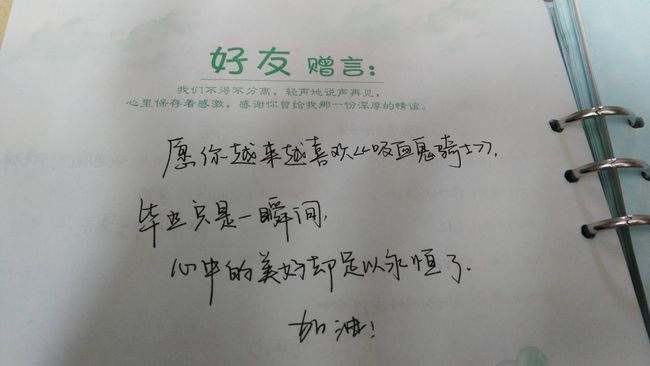 好友 赠言：
我们不得不分离，轻声地说声再见，
心里保存着感激，感谢你曾给我那一份深厚的情谊。
愿你越来越喜欢《吸血鬼骑士》，
毕业只是一瞬间，
心中的美好却足以永恒了．
加油！